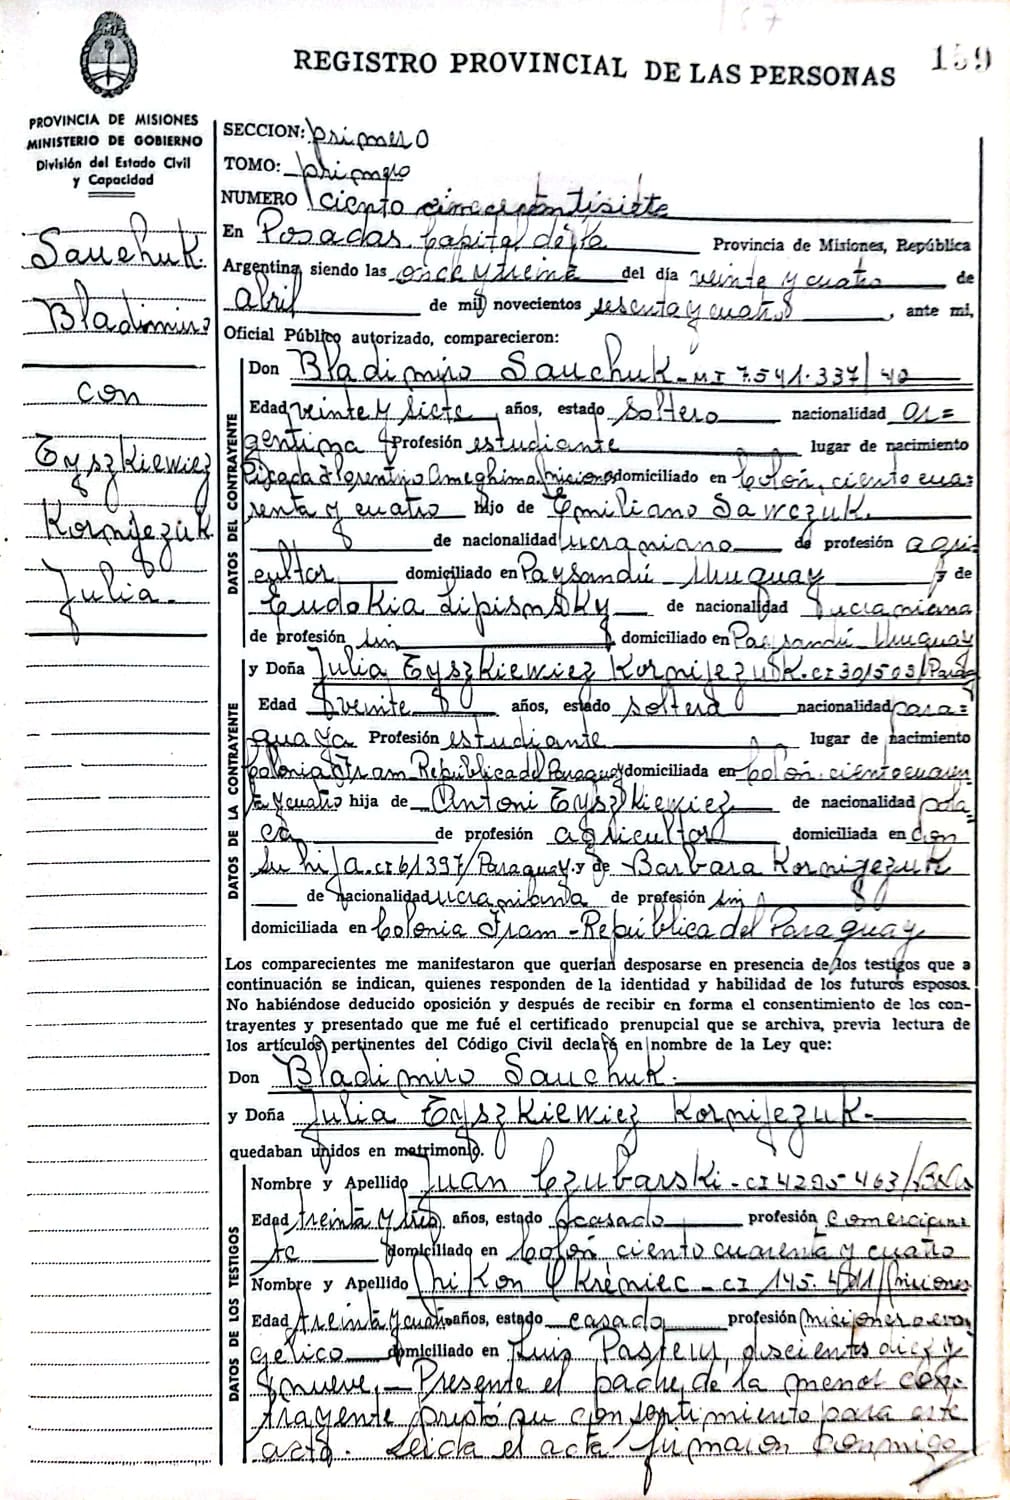 REGISTRO PROVINCIAL DE LAS PERSONAS
159
PROVINCIA DE MISIONES
MINISTERIO DE GOBIERNO
División del Estado Civil
y Capacidad
Sauchuk
Bladimiro
con
Tyszkiewiez
Kornijezuk
Julia.
SECCION: primero
TOMO: primero
NUMERO ciento cincuentisiete
En Posadas Capital de la Provincia de Misiones, República
Argentina siendo las once y treinta del día veinte y cuatro de
abril de mil novecientos sesenta y cuatro, ante mi,
Oficial Público autorizado, comparecieron:
DATOS DEL CONTRAYENTE
Don Bladimiro Sauchuk-MI 7.541.337/42
Edad veinte y siete años, estado soltero nacionalidad ar=
gentina Profesión estudiante lugar de nacimiento
Picada Florentino Ameghino Misiones domiciliado en Colón, ciento cua=
renta y cuatro hijo de Emiliano Sawczuk.
de nacionalidad ucraniano de profesión agri=
cultor domiciliado en Paysandú-Uruguay y de
Eudokia Lipisnsky de nacionalidad ucraniana
de profesión sin domiciliado en Paysandú Uruguay
DATOS DE LA CONTRAYENTE
y Doña Julia Tyszkiewiez Kornijezuk-CI 301503/Parag
Edad veinte años, estado soltera nacionalidad para=
guaya Profesión estudiante lugar de nacimiento
Colonia Fram República del Paraguay domiciliada en Colón, ciento cuaren
ta y cuatro hija de Antoni Tyszkiewiez de nacionalidad pola=
ca de profesión agricultor domiciliada en con
su hija. CI 61397/Paraguay. y de Barbara Kornijezuk
de nacionalidad ucraniana de profesión sin
domiciliada en Colonia Fram-República del Paraguay
Los comparecientes me manifestaron que querían desposarse en presencia de los testigos que a
continuación se indican, quienes responden de la identidad y habilidad de los futuros esposos.
No habiéndose deducido oposición y después de recibir en forma el consentimiento de los con-
trayentes y presentado que me fué el certificado prenupcial que se archiva, previa lectura de
los artículos pertinentes del Código Civil declaré en nombre de la Ley que:
Don Bladimiro Sauchuk.
y Doña Julia Tyszkiewiez Kornijezuk-
quedaban unidos en matrimonio.
DATOS DE LOS TESTIGOS
Nombre y Apellido Juan Czubarski-CI 4295463/BsAs
Edad treinta y tres años, estado casado profesión comercian
te domiciliado en Colón ciento cuarenta y cuatro
Nombre y Apellido Nikon Kréniec-CI 145.411/Misiones
Edad treinta y cuatro años, estado casado profesión misionero evan
gélico domiciliado en Luis Pasteur, doscientos diez y
nueve.-Presente el padre de la menor con=
trayente prestó su consentimiento para este
acto. Leída el acta firmaron conmigo